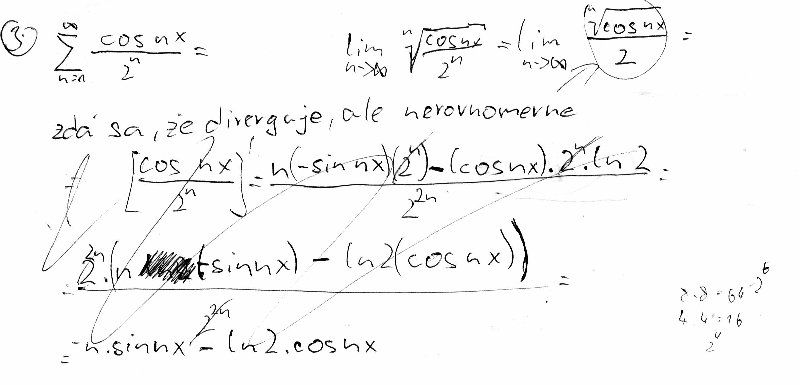 ③ ∞∑n=n cos nx / 2ⁿ = lim n→∞ ⁿ√(cos nx / 2ⁿ) = lim n→∞ ⁿ√(cos nx) / 2 =
zdá sa, že diverguje, ale nerovnomerne
= [cos nx / 2ⁿ]' = n(-sin nx)(2ⁿ) - (cos nx).2ⁿ.ln 2 / 2²ⁿ =
= 2ⁿ.(n (-sin nx) - ln 2(cos nx)) / 2²ⁿ =
= -n.sin nx - ln 2.cos nx
8.8=64=2⁶
4.4=16
2⁴